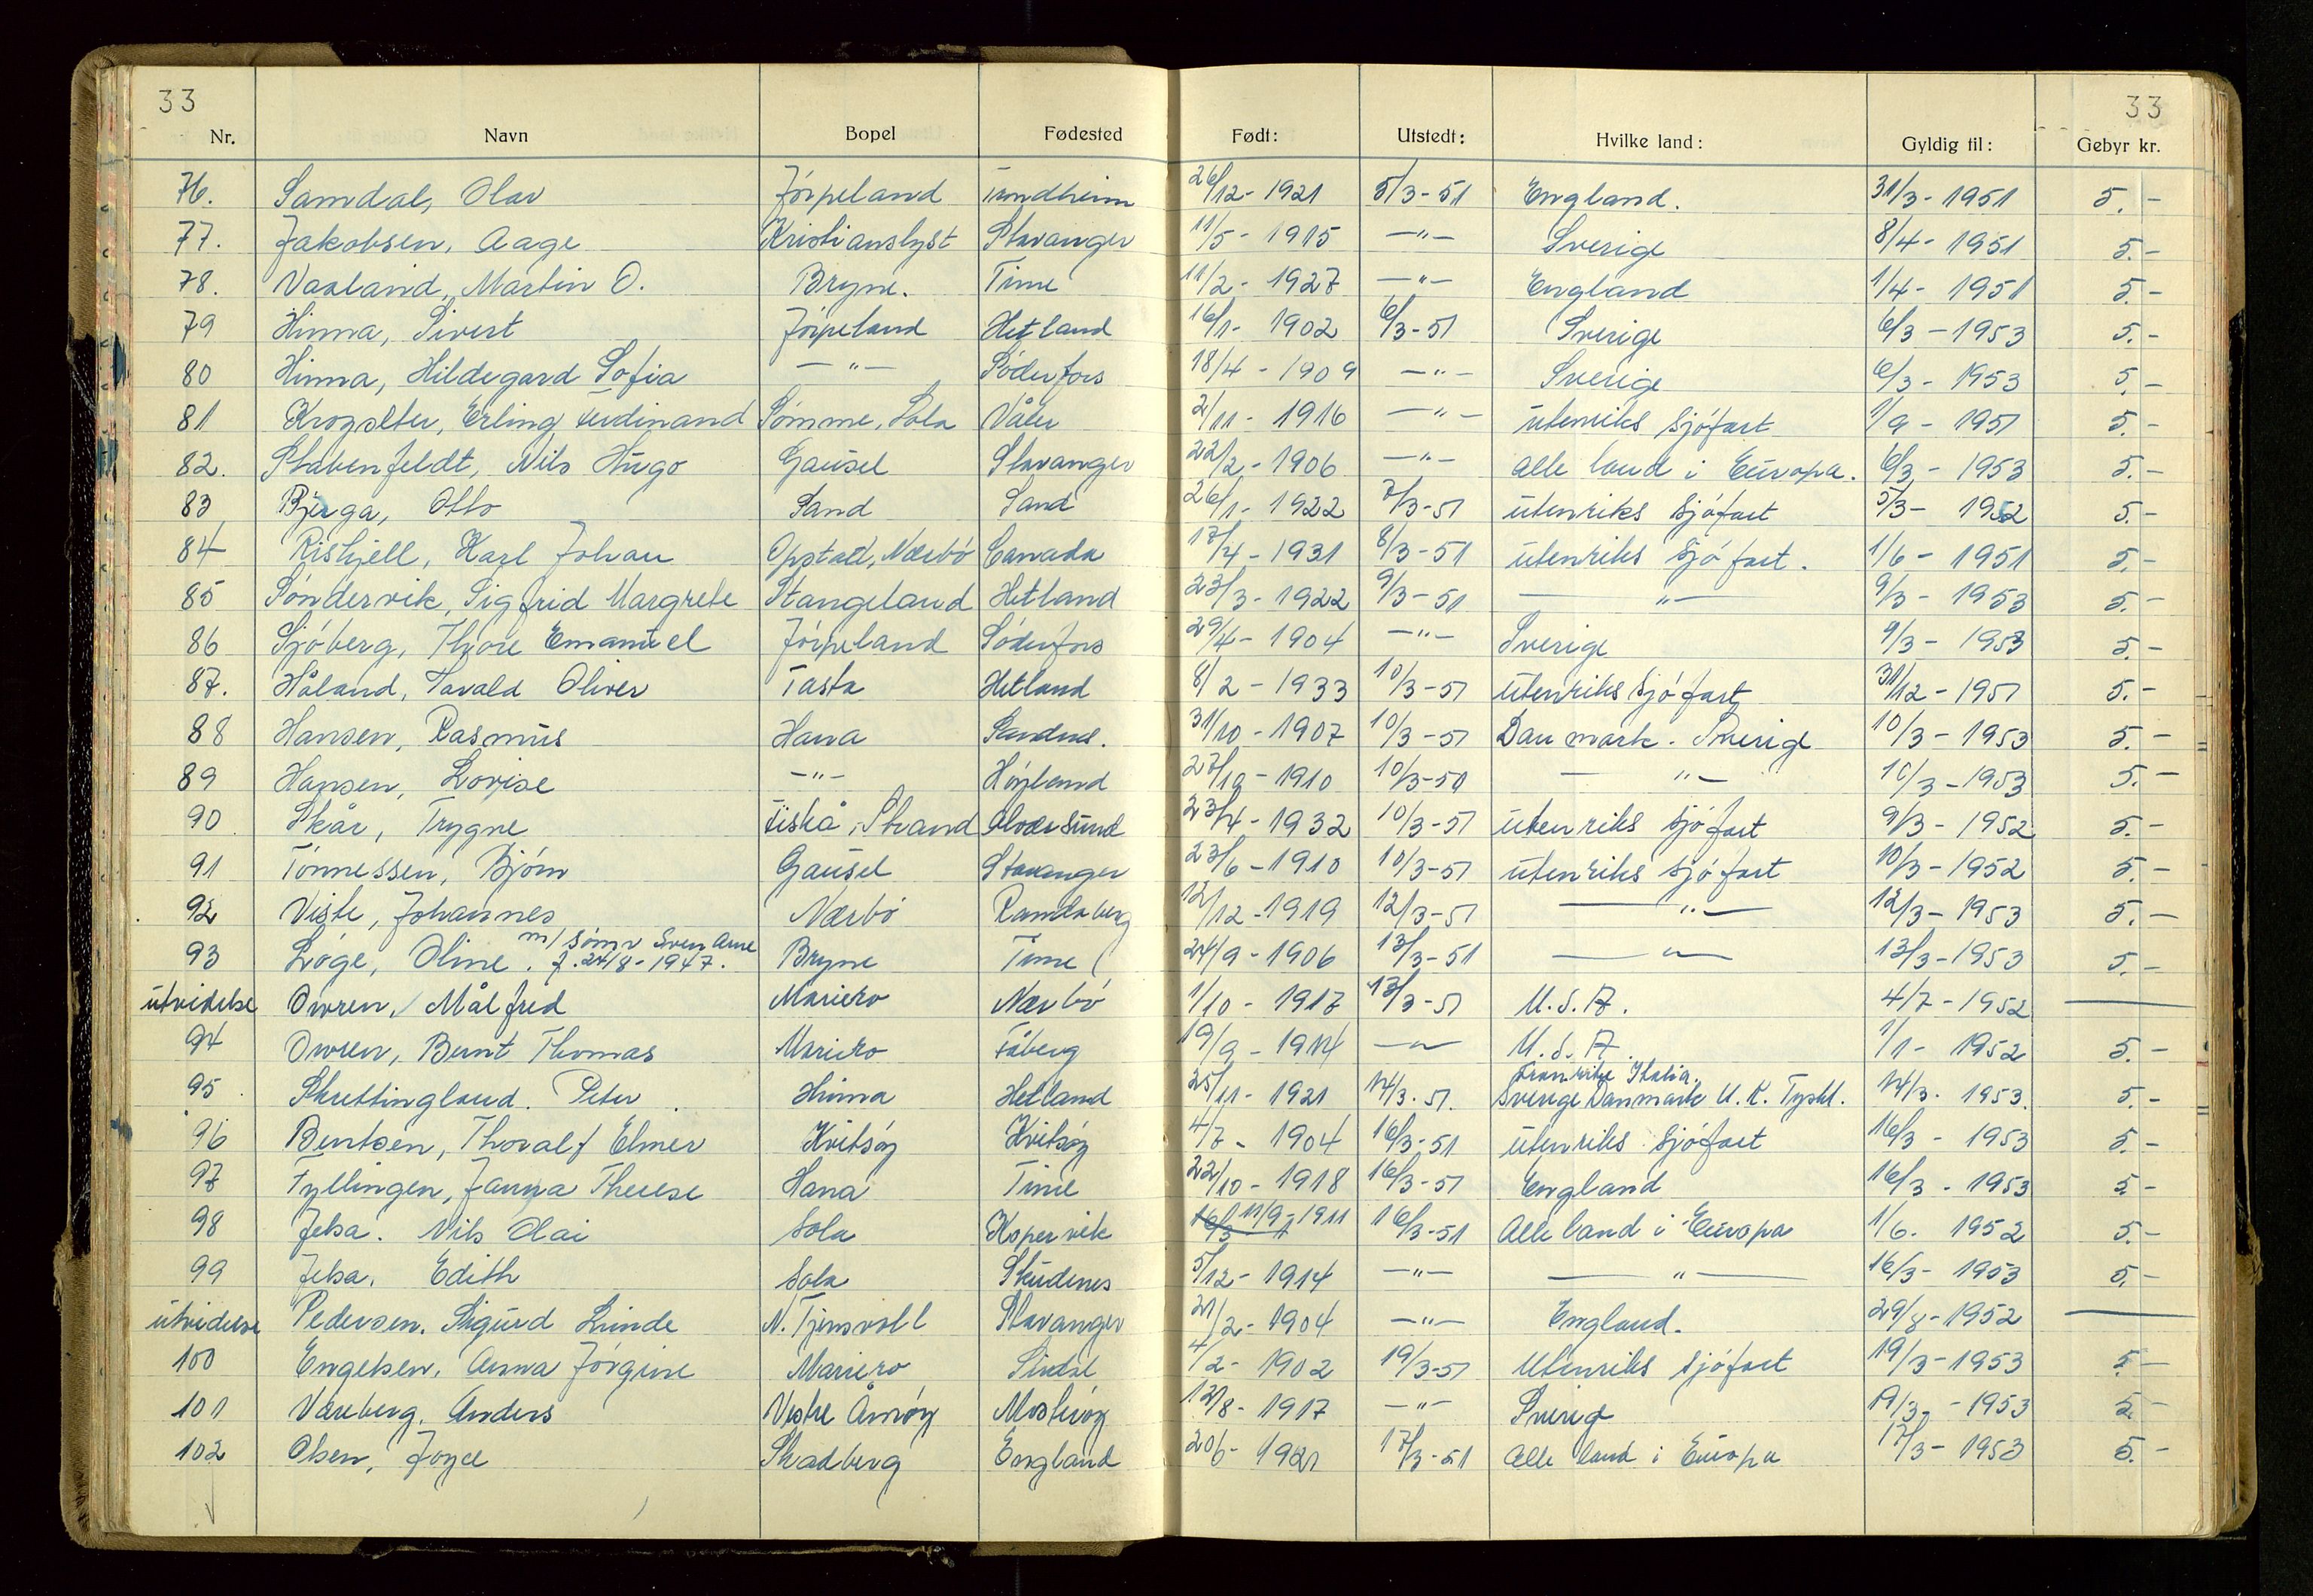 33 33
Nr. Navn Bopel Fødested Født: Utstedt: Hvilke land: Gyldig til: Gebyr kr.
76. Samdal, Olav Jørpeland Trondheim 26/12-1921 5/3-51 England. 31/3-1951 5.-
77. Jakobsen, Aage Kristianslyst Stavanger 11/5-1915 -"- Sverige 8/4-1951 5.-
78. Vaaland, Martin O. Bryne. Time 11/2-1927 -"- England 1/4-1951 5.-
79 Hinna, Sivert Jørpeland Hetland 16/1-1902 6/3-51 Sverige 6/3-1953 5.-
80 Hinna, Hildegard Sofia -"- Söderfors 18/4-1909 -"- Sverige 6/3-1953 5.-
81 Erling Ferdinand Sømme, Sola Våler 2/11-1916 -"- utenriks sjøfart 1/9-1951 5.-
82. Stabenfeldt, Nils Hugo Gausel Stavanger 22/2-1906 -"- alle land i Europa. 6/3-1953 5.-
83 Bjerga, Otto Sand Sand 26/1-1922 7/3-51 utenriks sjøfart 5/3-1952 5.-
84 Riskjell, Karl Johan Opstad, Nærbø Canada 17/4-1931 8/3-51 utenriks sjøfart. 1/6-1951 5.-
85 Søndervik, Sigfrid Margrete Stangeland Hetland 23/3-1922 9/3-51 -"- 9/3-1953 5.-
86 Sjøberg, Thore Emanuel Jørpeland Söderfors 29/4-1904 -"- Sverige 9/3-1953 5.-
87. Håland, Tavald Oliver Tasta Hetland 8/2-1933 10/3-51 utenriks sjøfart 31/12-1951 5.-
88 Hansen, Rasmus Hana Sandnes. 31/10-1907 10/3-51 Danmark. Sverige 10/3-1953 5.-
89 Hansen, Lovise -"- Høyland 27/10-1910 10/3-51 -"- 10/3-1953 5.-
90 Skår, Trygve Fiskå, Strand Alversund 23/4-1932 10/3-51 utenriks sjøfart 9/3-1952 5.-
91 Tønnessen, Bjørn Gausel Stavanger 23/6-1910 10/3-51 utenriks sjøfart 10/3-1952 5.-
92 Viste, Johannes Nærbø Randaberg 12/12-1919 12/3-51 -"- 12/3-1953 5.-
m/ sønn Sven Arne
93 Løge, Oline. f. 24/8-1947. Bryne Time 24/9-1906 13/3-51 -"- 13/3-1953 5.-
utvidelse Owren, Målfred Mariero Nærbø 1/10-1917 13/3-51 U.S.A. 4/7-1952
94 Owren, Bernt Thomas Mariero Fåberg 19/9-1914 -"- U.S.A. 1/1-1952 5.-
Frankrike Italia.
95 Skrettingland. Peter Hinna Hetland 25/11-1921 14/3.51. Sverige Danmark U.K. Tyskl. 14/3.1953. 5.-
96 Bentsen, Thoralf Elmer Kvitsøy Kvitsøy 4/7-1904 16/3-51 utenriks sjøfart 16/3-1953 5.-
97 Tyllingen, Janna Therese Hana Time 22/10-1918 16/3-51 England 16/3-1953 5.-
98 Jelsa. Nils Olai Sola Kopervik 11/9-1911 16/3-51 Alle land i Europa 1/6.1952 5.-
99 Jelsa. Edith Sola Skudenes 5/12-1914 -"- -"- 16/3-1953 5.-
utvidelse Pedersen. Sigurd Lunde N. Tjensvoll Stavanger 21/2-1904 -"- England. 29/8-1952
100 Engelsen. Anna Jørgine Mariero Sirdal 4/2-1902 19/3-51 Utenriks sjøfart 19/3-1953 5.-
101 Vareberg. Anders Vestre Åmøy Mosterøy 12/8-1917 -"- Sverige 19/3-1953 5.-
102 Olsen, Joyce Skadberg England 20/6-1921 17/3-51 alle land i Europa 17/3-1953 5.-